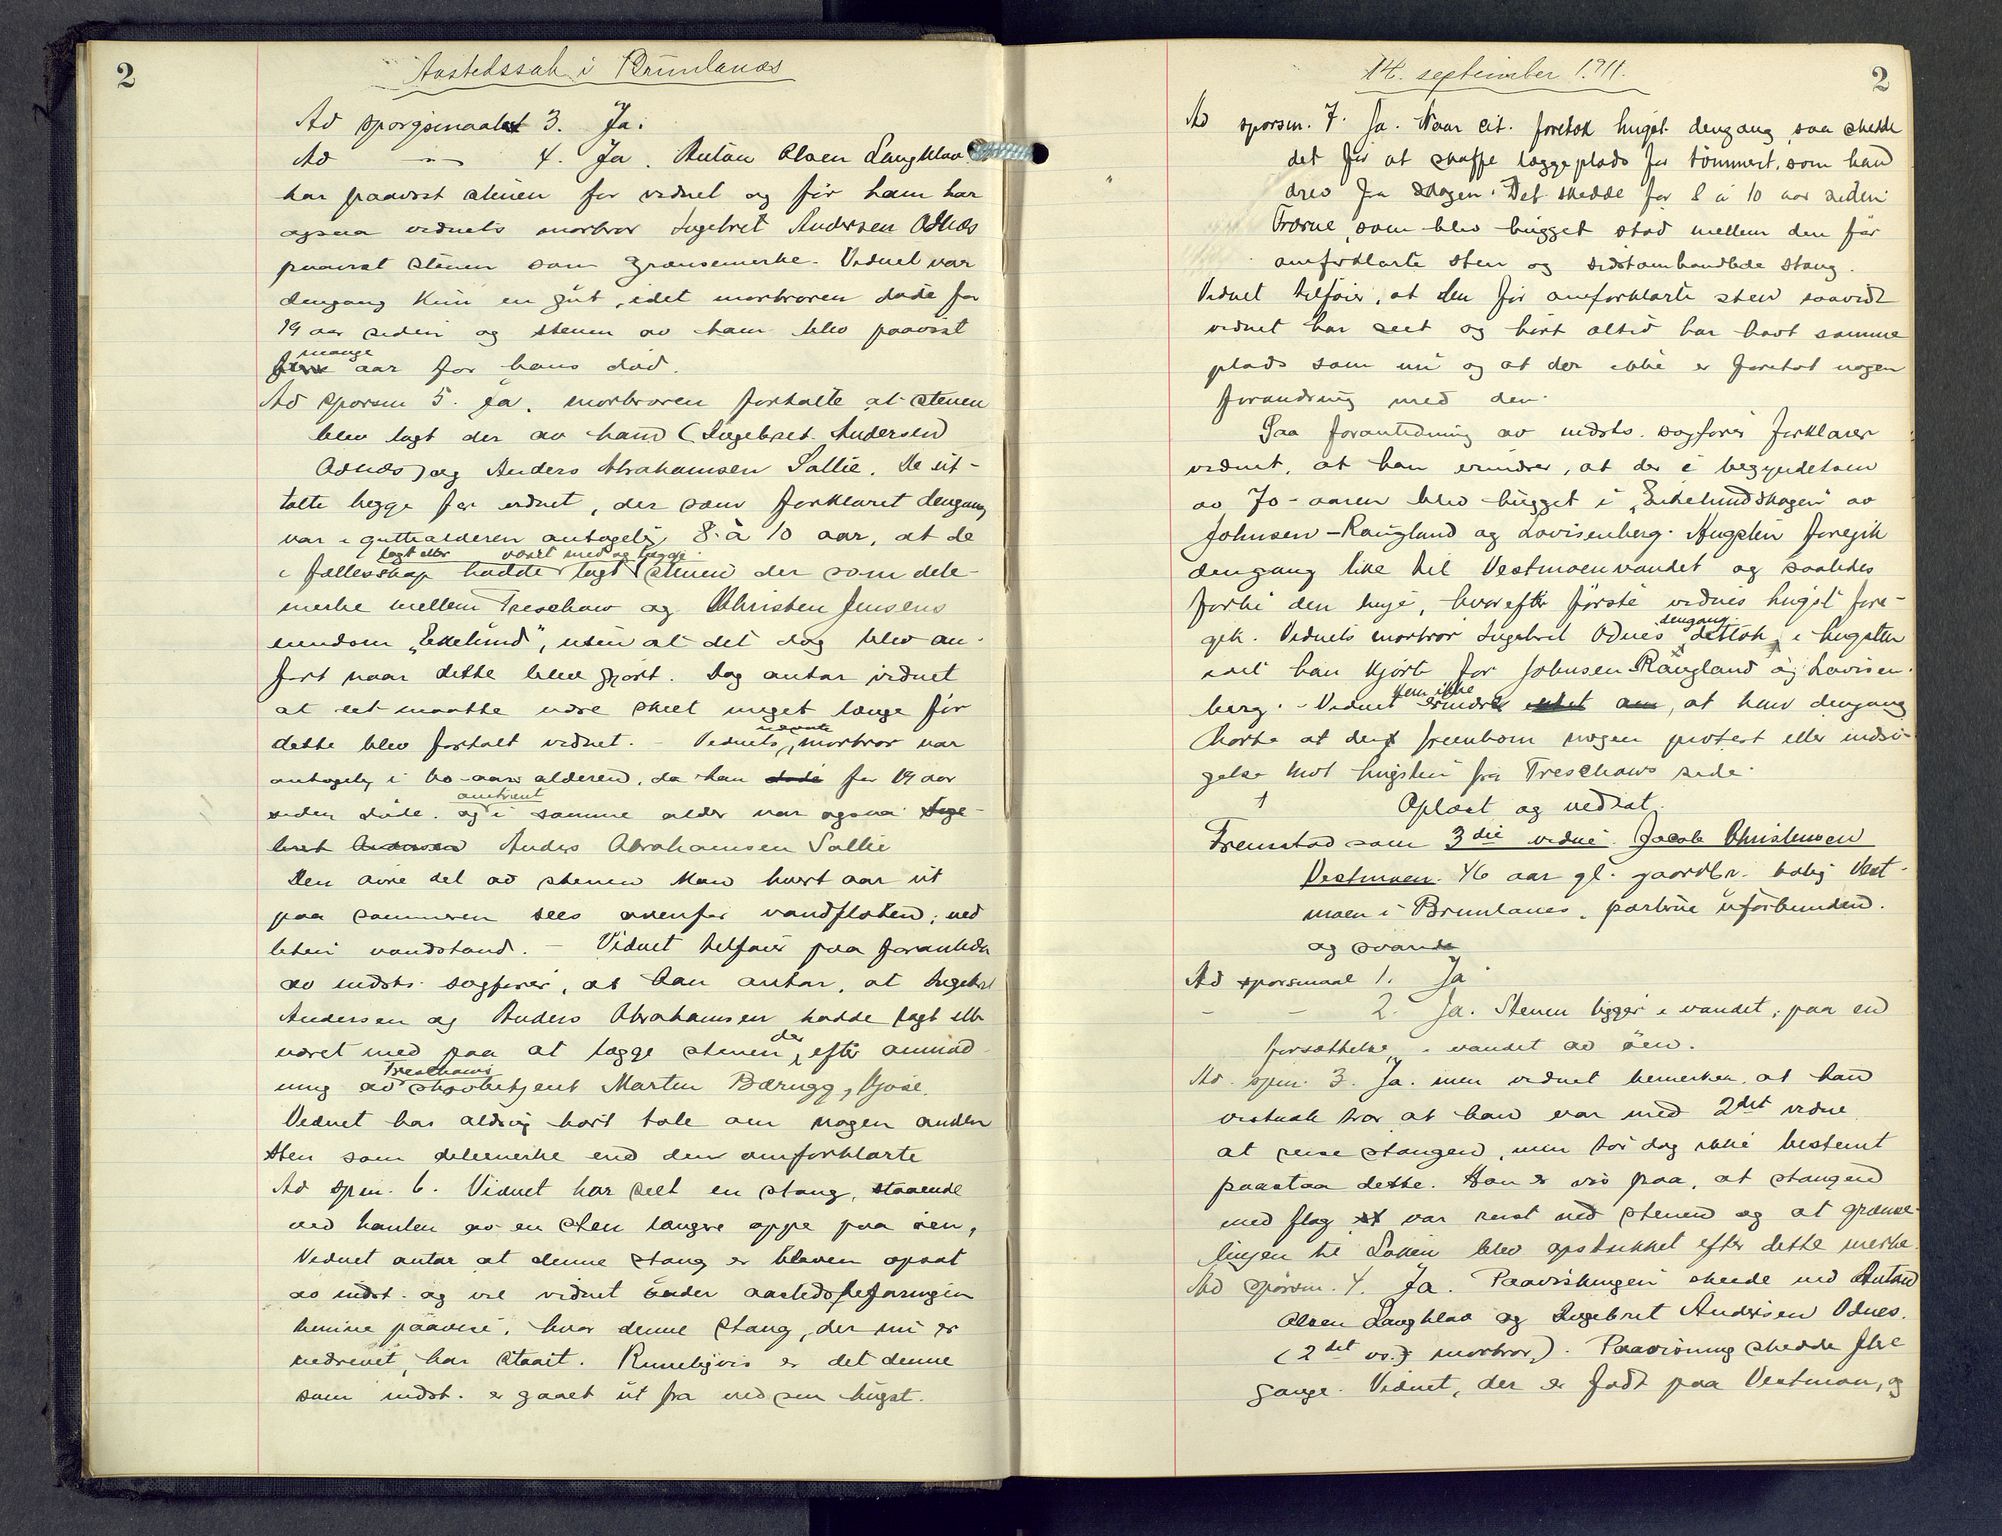 2
Aastedssak i Brunlanæs
Ad sporgsmaalet 3. Ja.
Ad —"— 4. Ja. Anton Olsen Langklav
har paavist stenen for vidnet og før ham har
ogsaa vidnets morbror Ingebret Andersen Odnæs
paavist stenen som grænsemerke. Vidnet var
dengang kun en gut, idet morbroren døde for
19 aar siden og stenen av ham blev paavist
mange
aar før hans død.
Ad sporsm 5. Ja, morbroren fortalte at stenen
blev lagt der av ham (Ingebret Andersen
Odnæs) og Anders Abrahamsen Sallie. De ut-
talte begge for vidnet, der som forklaret dengang
var i guttealderen antagelig 8 à 10 aar, at de
lagt eller været med og lægge
i fællesskap hadde lagt stenen der som dele-
merke mellem Treschow og Christen Jensens
eiendom "Ekelund", uten at det dog blev an-
ført naar dette blev gjort. Dog antar vidnet
at det maatte være skeet meget længe før
dette blev fortalt vidnet. – Vidnets nævnte morbror var
antagelig i 60-aars alderen, da han døde for 19 aar
omtrent
siden døde. og i samme alder var ogsaa Inge-
bret Andersen Anders Abrahamsen Sallie
Den øvre del av stenen kan hvert aar ut
paa sommeren sees ovenfor vandflaten; ved
liten vandstand. – Vidnet tilføier paa foranledn
av indsts. sagfører, at han antar, at Ingebret
Andersen og Anders Abrahamsen hadde lagt eller
været med paa at lægge stenen der, efter anmod-
Treschows
ning av skovbetjent Marten Bærugg, Kjose.
Vidnet har aldrig hørt tale om nogen anden
sten som delemerke end den omforklarte
Ad spm. 6. Vidnet har seet en stang, staaende
ved kanten av en sten længre oppe paa øen,
Vidnet antar at denne stang er bleven opsat
av indst. og vil vidnet under aastedsbefaringen
kunne paavise, hvor denne stang, der nu er
nedrevet, har staat. Rimeligvis er det denne
som indst. er gaaet ut fra ved sin hugst.
14. september 1911.
2
Ad sporsm. 7. Ja. Naar cit. foretok hugst dengang, saa skedde
det for at skaffe læggeplads for tømmeret, som han
drev fra skogen. Det skedde for 8 à 10 aar siden
Trærne, som blev hugget stod mellem den før
omforklarte sten og sidstomhandlede stang.
Vidnet tilføier, at den før omforklarte sten saavidt
vidnet har seet og hørt altid har havt samme
plads som nu og at der ikke er foretat nogen
forandring med den.
Paa foranledning av indsts. sagfører forklarer
vidnet, at han erindrer, at der i begyndelsen
av 70-aaren blev hugget i "Eikelundskogen" av
Johnsen-Raugland og Lovisenberg. Hugsten foregik
dengang like til Vestmoenvandet og saaledes
forbi den linje, hvorefter første vidnes hugst fore-
gik. Vidnets morbror Ingebret Odnes deltok dengang i hugsten
idet han kjørte for Johnsen Raugland og Lovisen-
berg. – Vidnet kan ikke erindre, at han dengang
hørte at det fremkom nogen protest eller indsi-
gelse mot hugsten fra Treschows side.
Oplæst og vedtat.
Fremstod som 3die vidne Jacob Christensen
Vestmoen. 46 aar gl. gaardbr. bolig Vest-
moen i Brunlanes, parterne uforbunden.
og svarede
Ad sporsmaal 1. Ja
– – 2. Ja. Stenen ligger i vandet, paa en
forsættelse i vandet av øen.
Ad. spm. 3. Ja. men vidnet bemerker, at han
vistnok tror at han var med 2det vidne
at reise stangen, men tør dog ikke bestemt
paastaa dette. Han er vis paa, at stangen
med flag var reist ved stenen og at grænse-
linjen til Løkken blev opstukket efter dette merke.
Ad spørsm. 4. Ja. Paavisningen skeede ved Anton
Olsen Langklav og Ingebret Andersen Odnes.
(2det vs. morbror). Paavisning skedde flere
gange. Vidnet, der er født paa Vestmoen, og